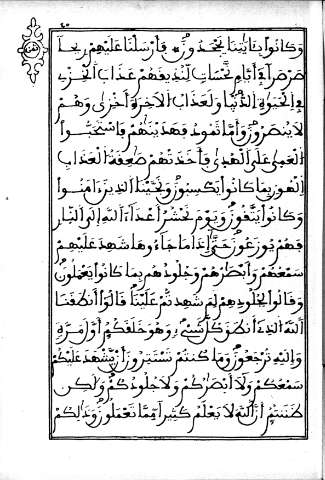 وَكَانُوا بِـَٔايَٰتِنَا يَجْحَدُونَ فَأَرْسَلْنَا عَلَيْهِمْ رِيحاً
صَرْصَراً فِي أَيَّامٍ نَحْسَاتٍ لِنُذِيقَهُمْ عَذَابَ الْخِزْيِ
فِي الْحَيَوٰةِ الدُّنْيَا وَلَعَذَابُ الَاخِرَةِ أَخْزَىٰ وَهُمْ
لَا يُنصَرُونَ وَأَمَّا ثَمُودُ فَهَدَيْنَٰهُمْ فَاسْتَحَبُّوا
الْعَمَىٰ عَلَى الْهُدَىٰ فَأَخَذَتْهُمْ صَٰعِقَةُ الْعَذَابِ
الْهُونِ بِمَا كَانُوا يَكْسِبُونَ وَنَجَّيْنَا الَّذِينَ ءَامَنُوا
وَكَانُوا يَتَّقُونَ وَيَوْمَ نَحْشُرُ أَعْدَاءَ اللَّهِ إِلَى النَّارِ
فَهُمْ يُوزَعُونَ حَتَّىٰ إِذَا مَا جَاءُوهَا شَهِدَ عَلَيْهِمْ
سَمْعُهُمْ وَأَبْصَٰرُهُمْ وَجُلُودُهُم بِمَا كَانُوا يَعْمَلُونَ
وَقَالُوا لِجُلُودِهِمْ لِمَ شَهِدتُّمْ عَلَيْنَا قَالُوا أَنطَقَنَا
اللَّهُ الَّذِي أَنطَقَ كُلَّ شَيْءٍ وَهُوَ خَلَقَكُمْ أَوَّلَ مَرَّةٍ
وَإِلَيْهِ تُرْجَعُونَ وَمَا كُنتُمْ تَسْتَتِرُونَ أَن يَشْهَدَ عَلَيْكُمْ
سَمْعُكُمْ وَلَا أَبْصَٰرُكُمْ وَلَا جُلُودُكُمْ وَلَٰكِن
ظَنَنتُمْ أَنَّ اللَّهَ لَا يَعْلَمُ كَثِيراً مِّمَّا تَعْمَلُونَ وَذَٰلِكُمْ